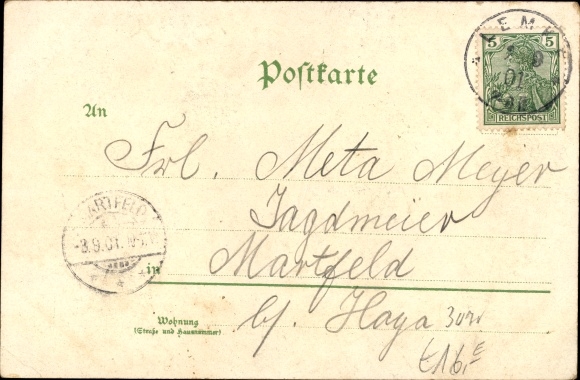 Postkarte
5 5
REICHSPOST
01
An
Frl. Meta Meyer
Jagdmeier
MARTFELD
-3.9.01.
in Martfeld
Wohnung
(Straße und Hausnummer)
b/ Hoya